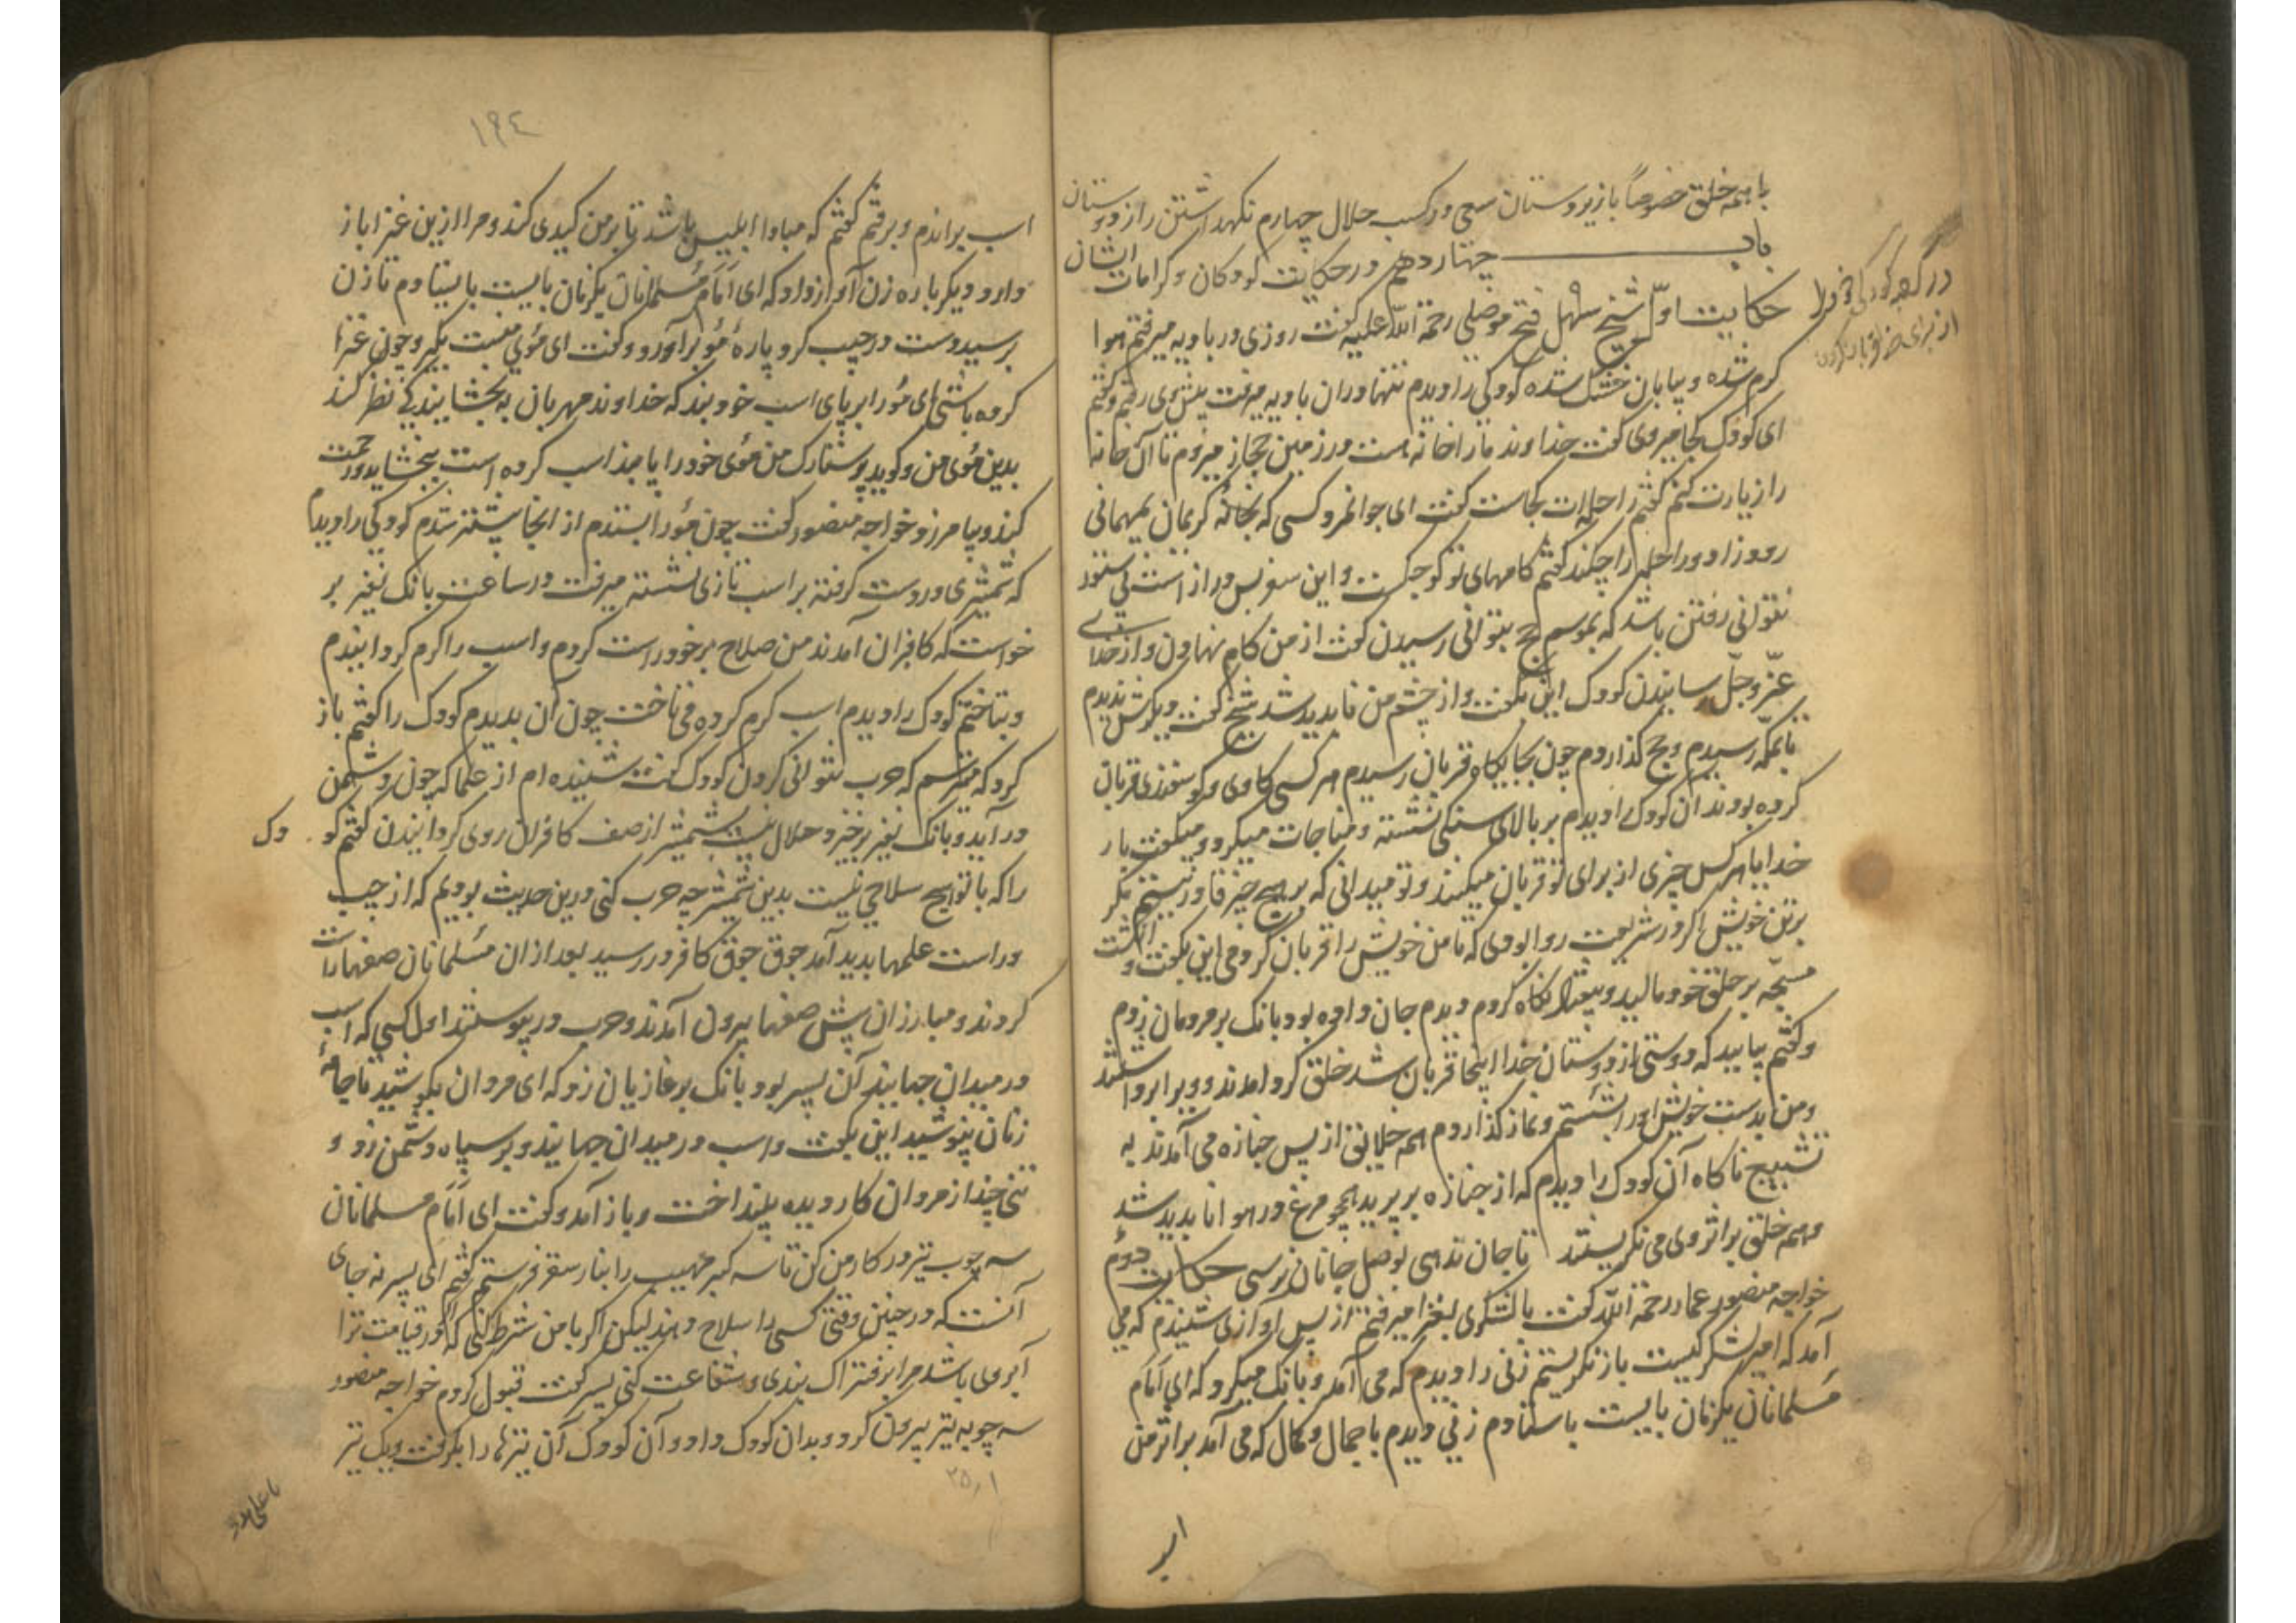 با همه خلق خصوصاً با زیردوستان سعی در کسب حلال چهارم نگهداشتن راز دوستان
باب چهاردهم در حکایت کودکان و کرامات ایشان
حکایت اول شیخ سهل فتح موصلی رحمة الله علیه گفت روزی در بادیه میرفتم هوا
گرم شده و بیابان خشک شده کودکی را دیدم تنها در آن بادیه میرفت پیش وی رفتم و گفتم
ای کودک کجا میروی گفت خداوند ما را خانه است در زمین حجاز میروم تا آن خانه
را زیارت کنم گفتم راحله‌ات کجاست گفت ای جوانمرد کسی که بخانه کریمان بمهمانی
رود زاد و راحله را چکند گفتم گامهای تو کوچکست و این سفر بس دراز است بی ستور
نتوانی رفتن باشد که بموسم حج نتوانی رسیدن گفت از من گام نهادن و از خدای
عزّ و جلّ رسانیدن کودک این بگفت و از چشم من ناپدید شد شیخ گفت دیگرش ندیدم
تا بمکه رسیدم و حج گذاردم چون بجایگاه قربان رسیدم هر کسی گاوی و گوسفندی قربان
کرده بودند آن کودک را دیدم بر بالای سنگی نشسته و مناجات میکرد و میگفت بار
خدایا هر کس چیزی از برای تو قربان میکنند و تو میدانی که بر هیچ چیز قادر نیستم مگر
بر تن خویش اگر در شریعت روا بودی که تا من خویش را قربان کردمی این بگفت و انگشت
مسبحه بر حلق خود مالید و بیفتاد نگاه کردم دیدم جان داده بود بانگ بر مردمان زدم
و گفتم بیایید که دوستی از دوستان خدا اینجا قربان شد خلق گرد آمدند و ویرا برداشتند
و من بدست خویش او را شستم و نماز گذاردم همه خلایق از پس جنازه می آمدند به
تسبیح ناگاه آن کودک را دیدم که از جنازه بر پرید همچو مرغ در هوا ناپدید شد
و همه خلق بر اثر وی می نگریستند تا جان ندهی بوصل جانان نرسی حکایت دوم
خواجه منصور عمار رحمة الله گفت با لشکری بغزا میرفتم از پس آوازی شنیدم که می
آمد که امیر لشکر کیست باز نگریستم زنی را دیدم که می آمد و بانگ میکرد که ای امام
مسلمانان یکزمان بایست باستادم زنی دیدم با جمال و کمال که می آمد بر اثر من
اسب
۱۹٤
اسب براندم و برفتم گفتم که مبادا ابلیس باشد تا بر من کیدی کند و مرا ازین غزا باز
دارد دیگر باره زن آواز داد که ای امام مسلمانان یکزمان بایست بایستادم تا زن
برسید دست در جیب کرد پارۀ مو برآورد و گفت ای موی منت بگیر و چون غزا
کرده باشی این مو را بر پای اسب خود بند که خداوند مهربان به بخشایندگی نظر کند
بدین موی من و گوید پرستارک من موی خود را پابند اسب کرده است ببخشاید و رحمت
کند و بیامرزد خواجه منصور گفت چون مو را بستدم از آنجا بیشتر شدم کودکی را دیدم
که شمشیری در دست گرفته بر اسب تازی نشسته میرفت در ساعت بانگ نفیر بر
خواست که کافران آمدند من صلاح بر خود راست کردم و اسب را گرم گردانیدم
و بتاختم کودک را دیدم اسب گرم کرده می تاخت چون آن بدیدم کودک را گفتم باز
گرد که میترسم که حرب نتوانی کردن کودک گفت شنیده‌ام از علما که چون دشمن
در آید و بانگ نفیر برخیزد حلال نیست شمشیر از صف کافران روی گردانیدن گفتم کودک
را که با تو هیچ سلاحی نیست بدین شمشیر چه حرب کنی درین حدیث بودیم که از چپ
و راست علمها پدید آمد جوق جوق کافر در رسید بعد از آن مسلمانان صفها راست
کردند و مبارزان پیش صفها بیرون آمدند و حرب در پیوستند اول کسی که اسب
در میدان جهانید آن پسر بود بانگ بر غازیان زد که ای مردان بکوشید تا جامۀ
زنان نپوشید این بگفت و اسب در میدان جهانید و بر سپاه دشمن زد و
تنی چند از مردان کار دیده بینداخت و باز آمد و گفت ای امام مسلمانان
سه چوب تیر در کار من کن تا سه گبر مهیب را بنار سقر فرستم گفتم ای پسر نه جای
آنست که در چنین وقتی کسی را سلاح دهند لیکن اگر با من شرط کنی که اگر در قیامت ترا
آبروی باشد مرا بر فتراک بندی و شفاعت کنی پسر گفت قبول کردم خواجه منصور
سه چوبه تیر بیرون کرد و بدان کودک داد و آن کودک آن تیرها را بگرفت و یک تیر